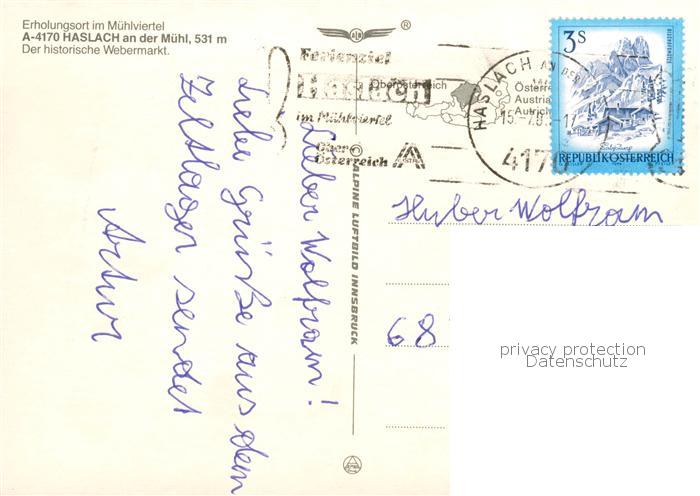 Erholungsort im Mühlviertel
A-4170 HASLACH an der Mühl, 531 m
Der historische Webermarkt.
®
Ferienziel
Haslach
im Mühlviertel
Ober
Österreich
Oberösterreich
Österre
Austria
Autrich
HASLACH AN DER
4170
3S
REPUBLIK ÖSTERREICH
ALPINE LUFTBILD INNSBRUCK
Lieber Wolfram!
Liebe Grüße aus dem
Zeltlager sendet
Artur
Huber Wolfram
68
privacy protection
Datenschutz